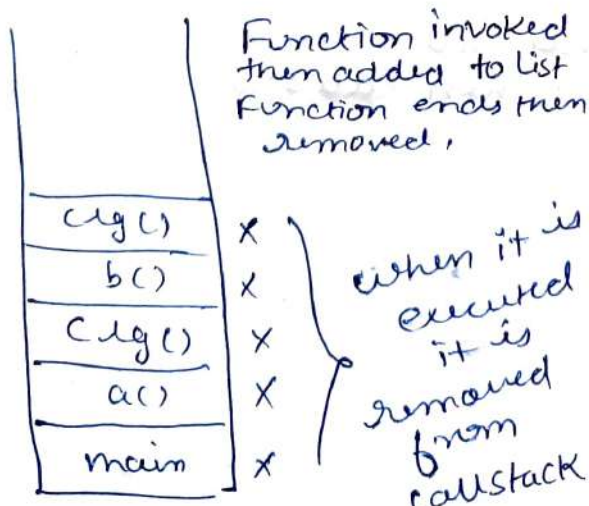 Function invoked
then added to List
Function ends then
removed,
clg()
x
b()
x
Clg()
x
a()
x
main
x
when it is
executed
it is
removed
from
callstack